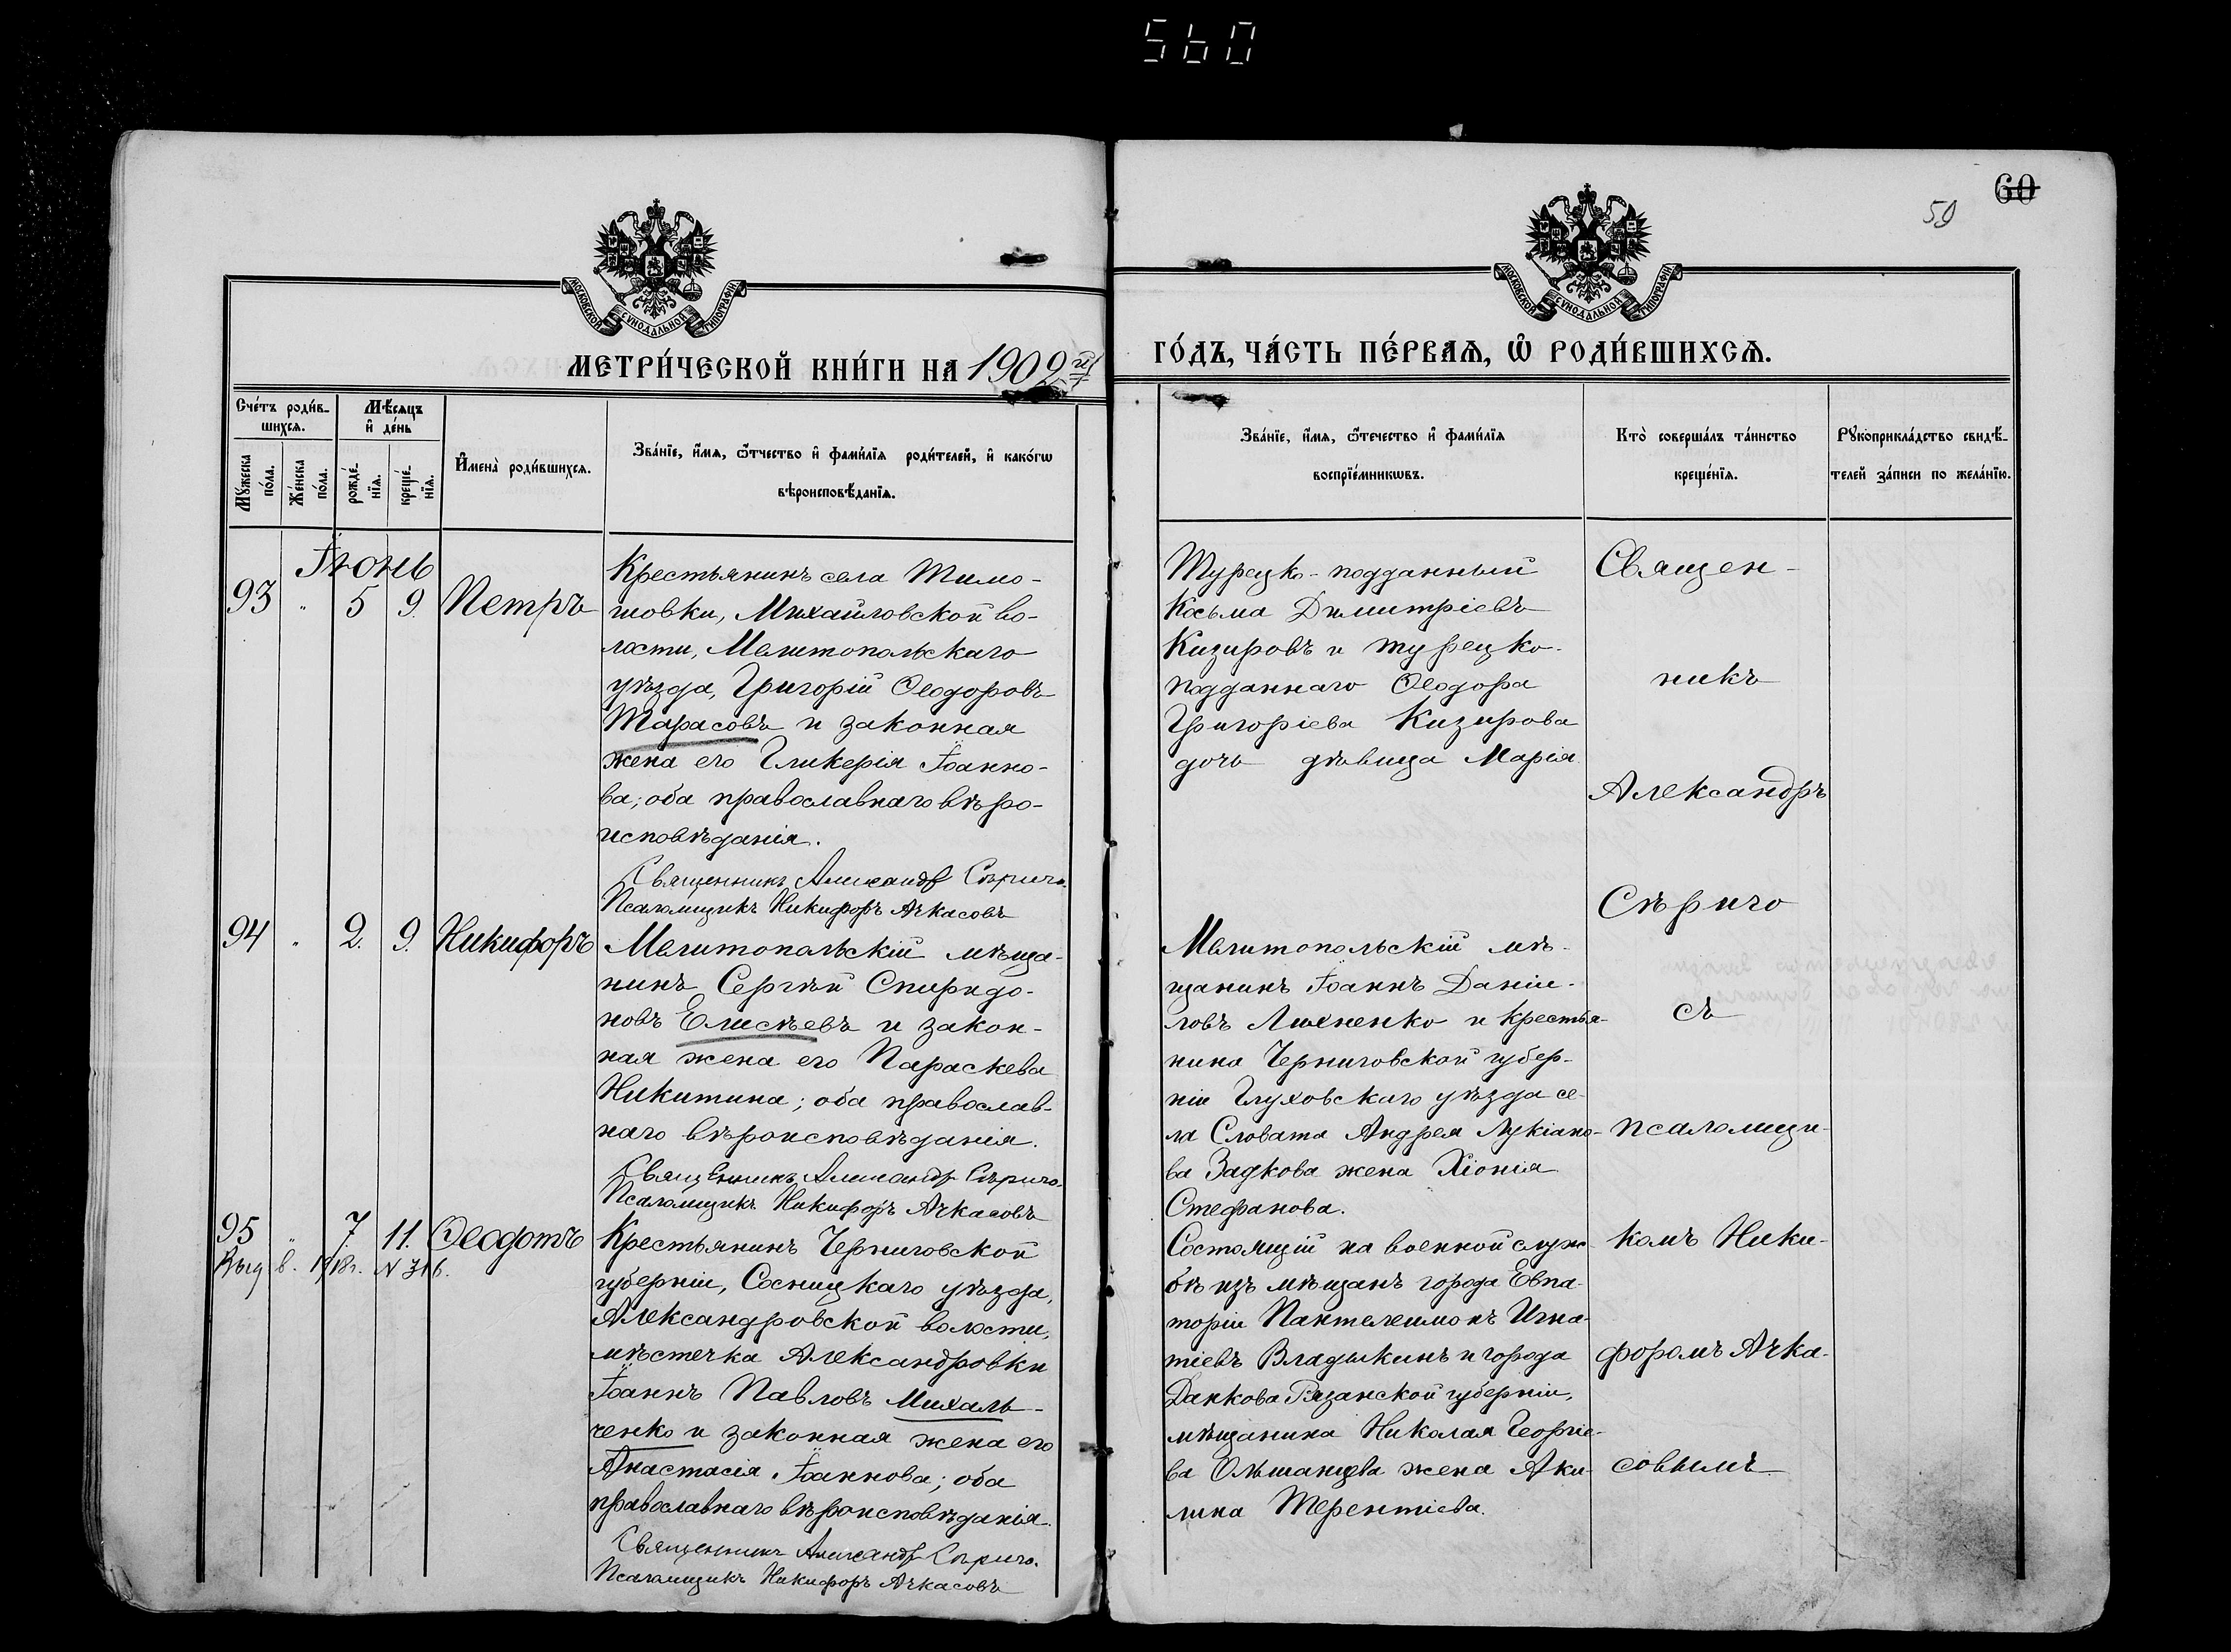 560
60
59
МОСКОВСКОЙ СѴНОДАЛЬНОЙ ТИПОГРАФІИ
МОСКОВСКОЙ СѴНОДАЛЬНОЙ ТИПОГРАФІИ
МЕТРИ́ЧЕСКОЙ КНИ́ГИ НА 1902й
ГО́ДЪ, ЧА́СТЬ ПЕ́РВАѦ, Ѽ РОДИ́ВШИХСѦ.
Сче́тъ роди́в-
шихсѧ.
Мѣ́сѧцъ
и҆ де́нь
Мꙋ́жеска
по́ла.
Же́нска
по́ла.
рожде́-
нїѧ.
креще́-
нїѧ.
И҆мена̀ роди́вшихсѧ.
Зва́нїе, и҆́мѧ, ѻ҆́тчество и҆ фами́лїѧ роди́телей, и҆ како́гѡ
вѣроисповѣ́данїѧ.
Зва́нїе, и҆́мѧ, ѻ҆те́чество и҆ фами́лїѧ
воспрїе́мникѡвъ.
Кто̀ соверша́лъ та́инство
креще́нїѧ.
Рꙋкоприкла́дство свидѣ́-
телей за́писи по жела́нїю.
Іюнь
93 " 5 9. Петръ
Крестьянинъ села Тимо-
шовки, Михайловской во-
лости, Мелитопольскаго
уѣзда, Григорій Ѳеодоровъ
Тарасовъ и законная
жена его Гликерія Іоанно-
ва; оба православнаго вѣро-
исповѣданія.
Священникъ Александръ Сѣричо.
Псаломщикъ Никифоръ Ачкасовъ
Турецко-подданный
Косьма Димитріевъ
Кизировъ и турецко-
подданнаго Ѳеодора
Григоріева Кизирова
дочь дѣвица Марія.
94 " 2. 9. Никифоръ
Мелитопольскій мѣща-
нинъ Сергѣй Спиридо-
новъ Елисѣевъ и закон-
ная жена его Параскева
Никитина; оба православ-
наго вѣроисповѣданія.
Священникъ Александръ Сѣричо.
Псаломщикъ Никифоръ Ачкасовъ
Мелитопольскій мѣ-
щанинъ Іоаннъ Даніи-
ловъ Лихненко и крестья-
нина Черниговской губер-
ніи Глуховскаго уѣзда се-
ла Словата Андрея Лукіано-
ва Задкова жена Хіонія
Стефанова.
95 " 7 11. Ѳеодотъ
Выд в. 1918г. N 316.
Крестьянинъ Черниговской
губерніи, Сосницкаго уѣзда,
Александровской волости,
мѣстечка Александровки
Іоаннъ Павловъ Михаль-
ченко и законная жена его
Анастасія Іоаннова; оба
православнаго вѣроисповѣданія.
Священникъ Александръ Сѣричо.
Псаломщикъ Никифоръ Ачкасовъ
Состоящій на военной служ-
бѣ изъ мѣщанъ города Евпа-
торіи Пантелеимонъ Игна-
тіевъ Владыкинъ и города
Данкова Рязанской губерніи,
мѣщанина Николая Георгіе-
ва Ольшанцева жена Аки-
лина Терентіева.
Священ-
никъ
Александръ
Сѣричо
съ
псаломщи-
комъ Ники-
форомъ Ачка-
совымъ.